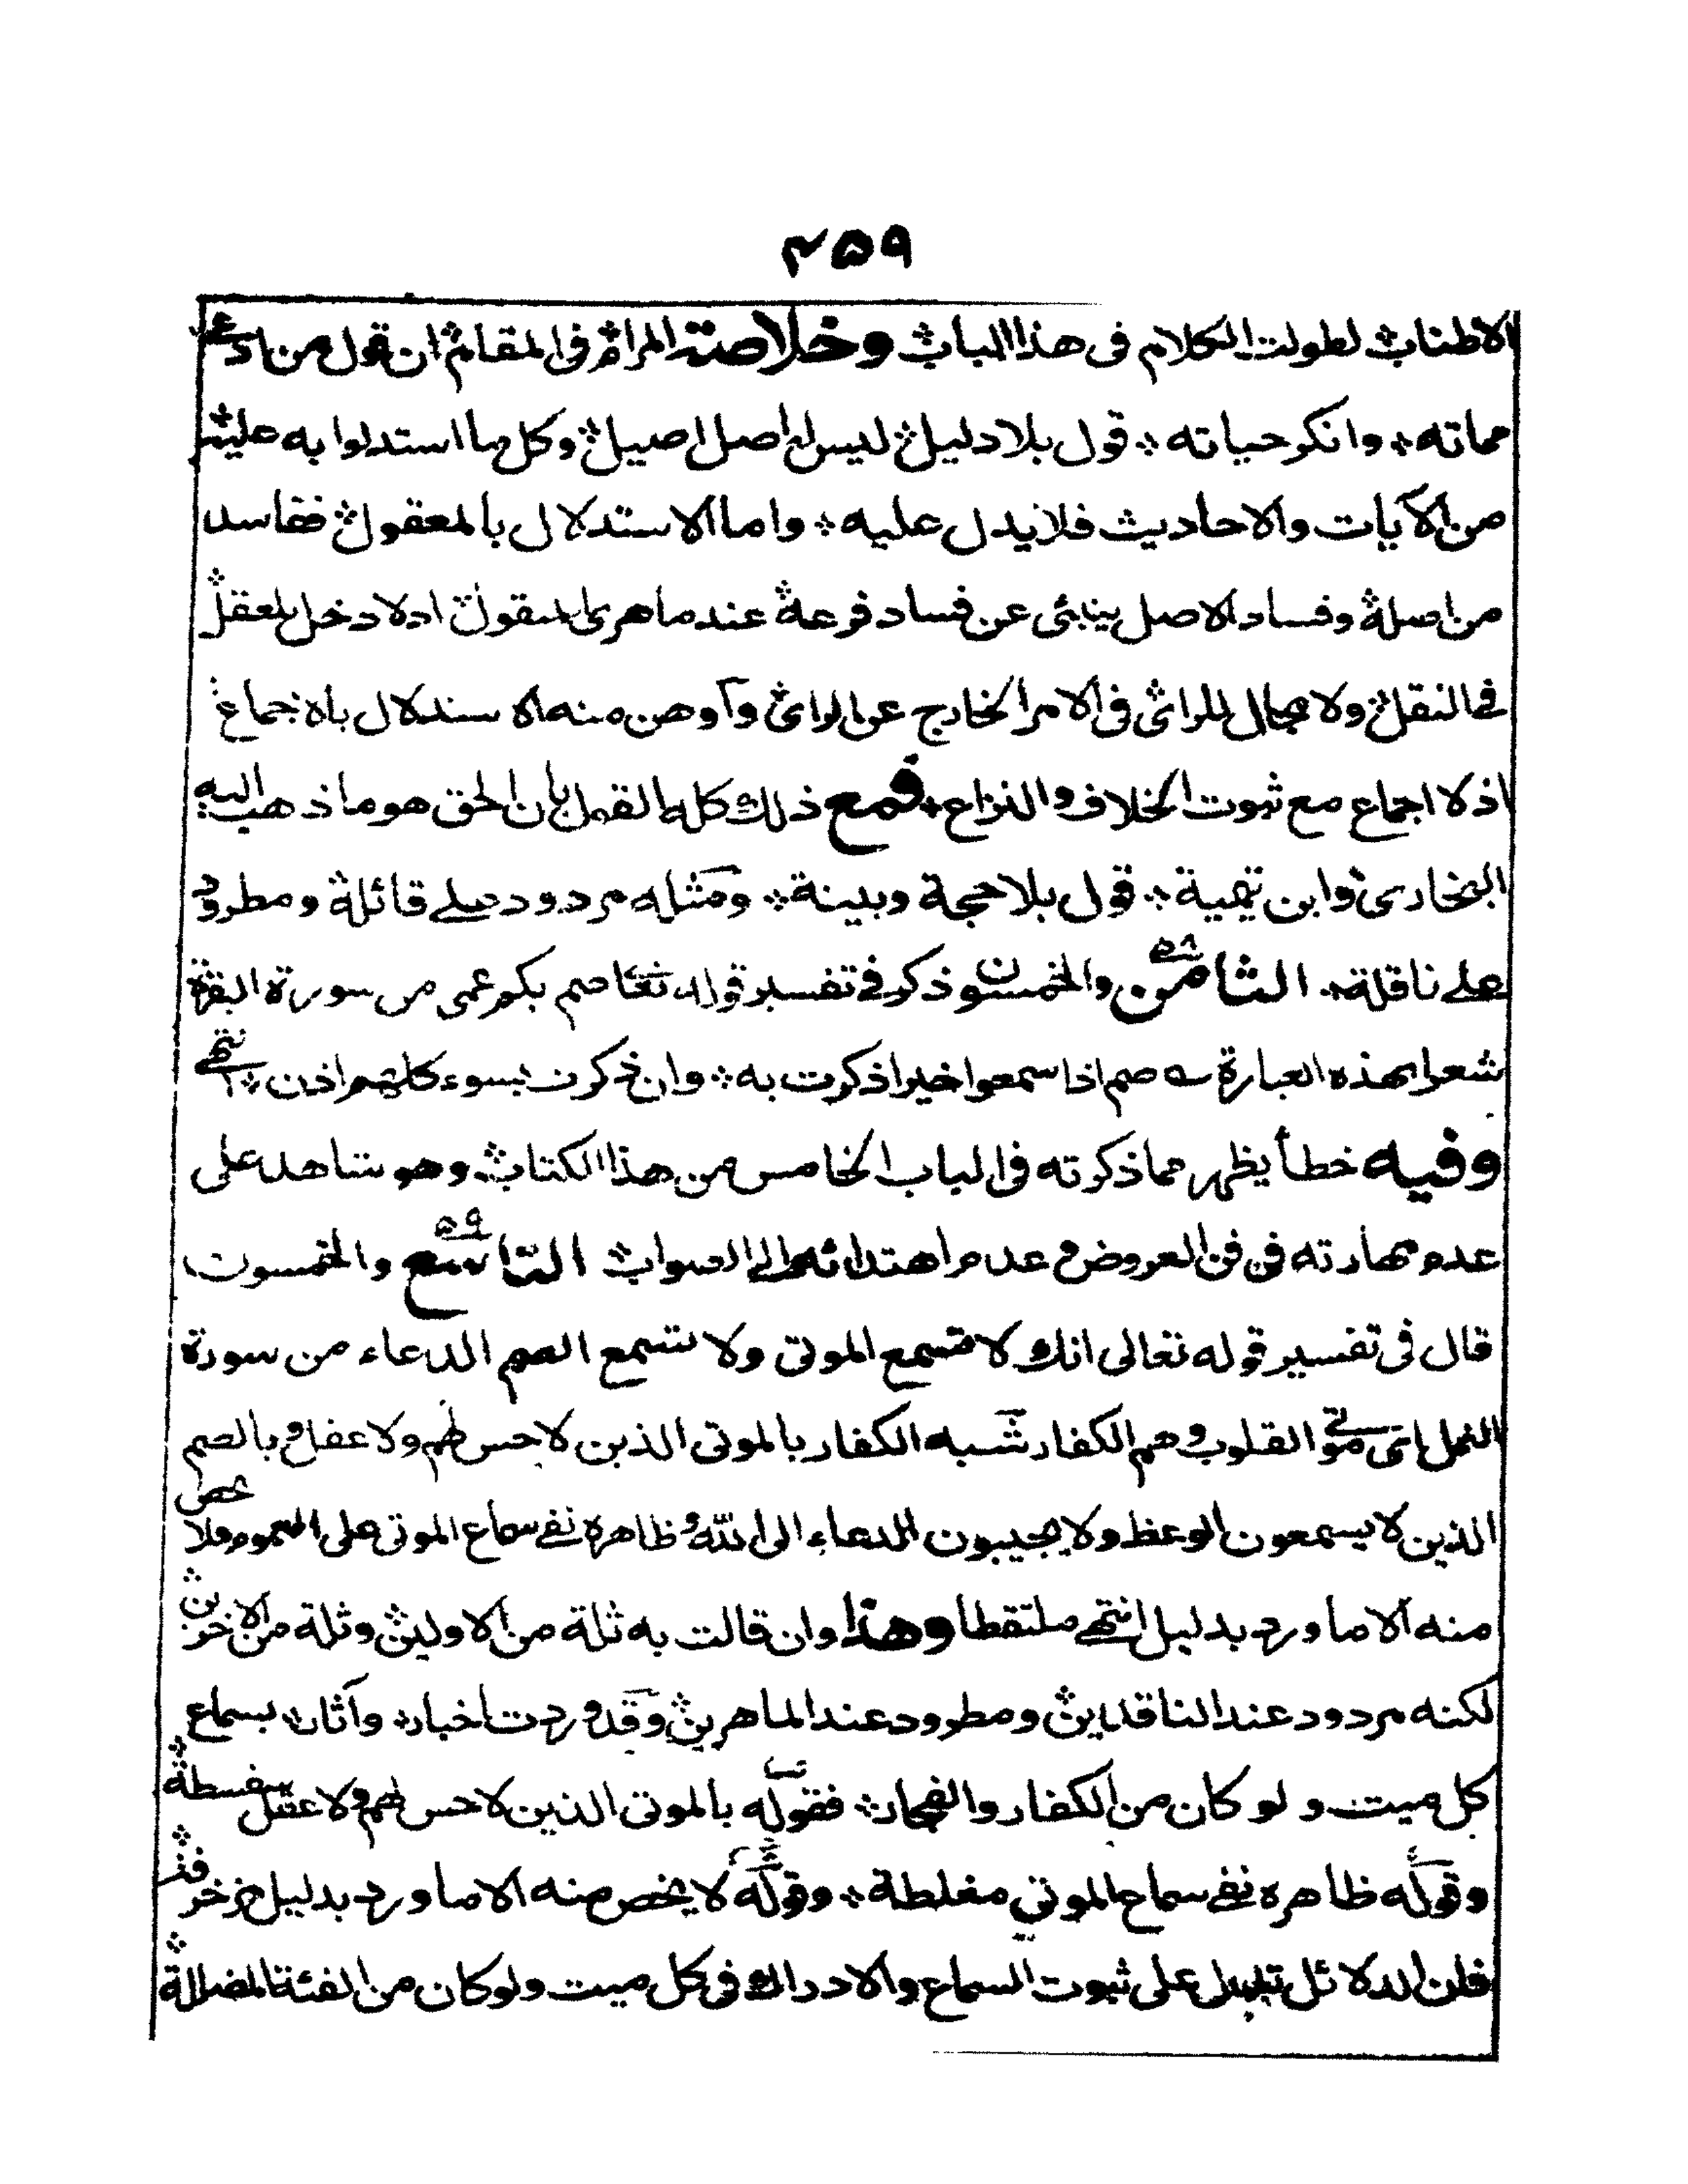 ٤٥٩
الاطناب لطولت الكلام فى هذا الباب وخلاصة المرام فى المقام ان قول من ادعى
مماته وانكر حياته قول بلا دليل ليس له اصل اصيل وكل ما استدلوا به عليه
من الآيات والاحاديث فلا يدل عليه واما الاستدلال بالمعقول ففاسد
من اصله وفساد الاصل ينبئ عن فساد فرعه عند ماهرى المنقول اذ لا دخل للعقل
فى النقل ولا مجال للرائى فى الامر الخارج عن الرائى وآوهن منه الاستدلال بالاجماع
اذ لا اجماع مع ثبوت الخلاف والنزاع فمع ذلك كله القول بان الحق هو ما ذهب اليه
البخارى وابن تيمية قول بلا حجة وبينة ومثله مردود على قائله ومطرود
على ناقله الثامن ٥٨ والخمسون ذكر فى تفسير قوله تعا صم بكم عمى من سورة البقرة
شعرا بهذه العبارة ـه صم اذا سمعوا خيرا ذكرت به وان ذكرت بسوء كلهم اذن انتهى
وفيه خطأ يظهر مما ذكرته فى الباب الخامس من هذا الكتاب وهو شاهد على
عدم مهارته فى فن العروض وعدم اهتدائه الى الصواب التاسع ٥٩ والخمسون
قال فى تفسير قوله تعالى انك لا تسمع الموتى ولا تسمع الصم الدعاء من سورة
النمل اى موتى القلوب وهم الكفار شبه الكفار بالموتى الذين لا حس لهم ولا عقل وبالصم
الذين لا يسمعون الوعظ ولا يجيبون الدعاء الى الله وظاهره نفى سماع الموتى على العموم فلا يخص
منه الا ما ورد بدليل انتهى ملتقطا وهذا وان قالت به ثلة من الاولين وثلة من الاخرين
لكنه مردود عند الناقدين ومطرود عند الماهرين وقد وردت اخبار وآثار بسماع
كل ميت ولو كان من الكفار والفجار فقوله بالموتى الذين لا حس لهم ولا عقل سفسطة
وقوله ظاهره نفى سماع الموتى مغلطة وقوله لا يخص منه الا ما ورد بدليل زخرفة
فان الدلائل تدل على ثبوت السماع والادراك فى كل ميت ولو كان من الفئة الضالة